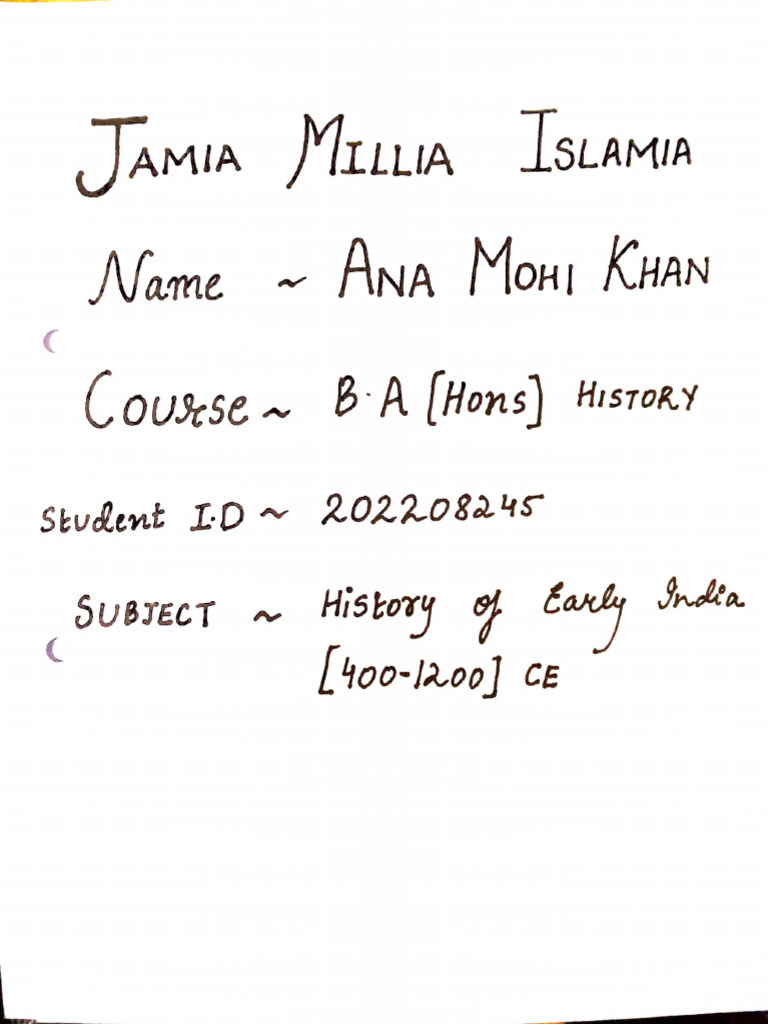 JAMIA MILLIA ISLAMIA
Name ~ ANA MOHI KHAN
Course ~ B.A [Hons] HISTORY
Student I.D ~ 202208245
SUBJECT ~ History of Early India
[400-1200] CE